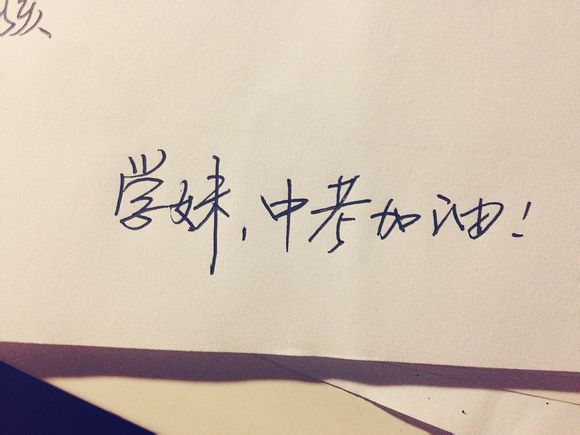 学妹,中考加油!